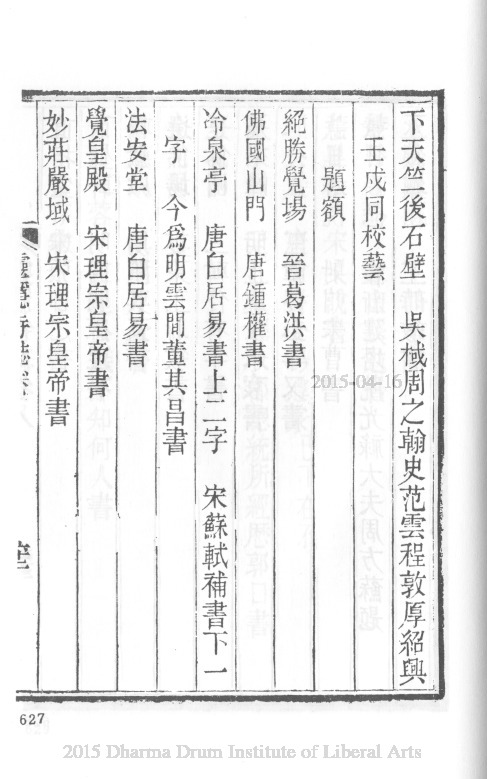 下天竺後石壁　吳棫周之翰史范雲程敦厚紹興
壬戌同校藝
題額
絕勝覺場　晉葛洪書
佛國山門　唐鍾權書
冷泉亭　唐白居易書上二字　宋蘇軾補書下一
字　今爲明雲間董其昌書
法安堂　唐白居易書
覺皇殿　宋理宗皇帝書
妙莊嚴域　宋理宗皇帝書
2015-04-16
627
2015 Dharma Drum Institute of Liberal Arts